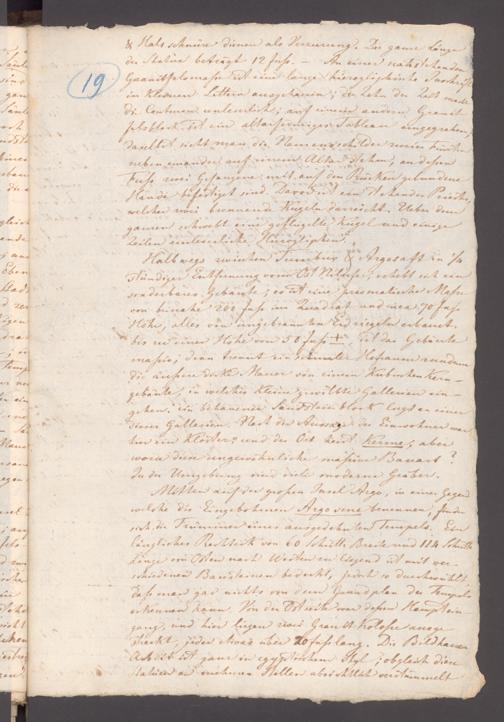 19
& Halsschnüre dienen als Verzierung. Die ganze Länge
der Statue beträgt 12 fuss. — An einer nahestehenden
Granitfelsmasse ist eine lange hieroglyphische Inschrift
in kleinen Lettern ausgehauen; der Zahn der Zeit machte
die Contouren unleserlich; auf einem andern Granit-
felsblock ist ein altarförmiges Tableau eingegraben,
daselbst sieht man die Namensschilder zweier
nebeneinander auf einem Altar stehen, an dessen
Fuss zwei Gefangene mit auf den Rücken gebundene
Hände befestigt sind. Davor ist ein stehender Priester,
welcher zwei brennende Kugeln darreicht. Ueber dem
ganzen schwebt eine geflügelte Kugel und einige
Zeilen unleserliche Hieroglyphen.
Halbwegs zwischen & Argosaft in
stündiger Entfernung vom Ost Nilufer, erhebt sich ein
sonderbares Gebäude; es ist eine prismatische Masse
von beinahe 200 fuss im Quadrat und circa 70 fuss
Höhe, alles von ungebrannten Erdziegeln erbaut.
bis zu einer Höhe von 50 fuss ist das Gebäude
massiv; dann trennt ein Hofraum rundum
die äussere dicke Mauer von einem kubischen Kern-
gebäude, in welches kleine gewölbte Gallerien ein-
gehen. ein behauener Sandsteinblock liegt an einer
dieser Gallerien. Nach der Aussage der Einwohner war
hier ein Kloster und der Ort heisst Kerme; aber
wozu diese ungewöhnliche massive Bauart?
In der Umgebung sind viele moderne Gräber.
Mitten auf der grossen Insel Argo, in einer Gegend
welche die Eingebohrnen Argosene benennen, finden
sich die Trümmer eines ausgedehnten Tempels. Ein
längliches Rechteck von 60 Schritte Breite und 114 Schritte
Länge von Osten nach Westen liegend ist mit ver-
schiedenen Bausteinen bedeckt, jedoch so durchwühlt
dass man gar nichts von dem Grundplan des Tempels
erkennen kann. Von der Ostseite war dessen Hauptein-
gang, und hier liegen zwei Granit Kolosse ausge-
streckt, jeder etwas über 20 fuss lang. Die Bildhauer
Arbeit ist ganz in egyptischem Styl; obgleich diese
Statuen an mehrern Stellen absichtlich verstümmelt